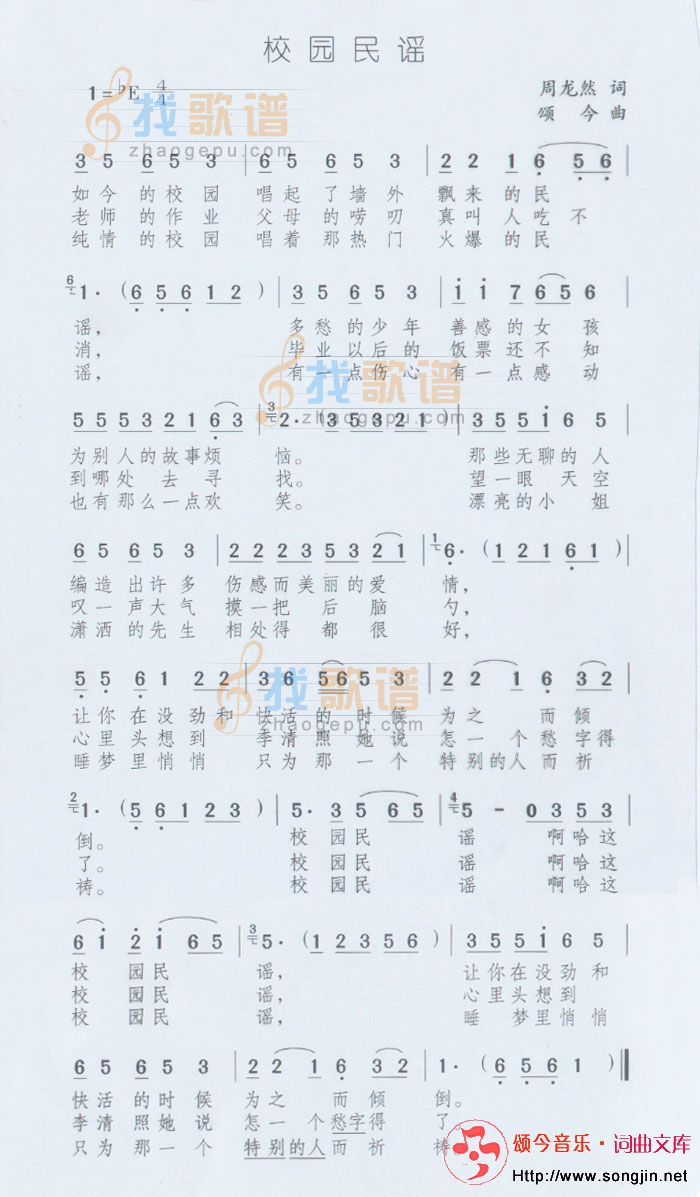 校园民谣
1=♭E 4/4
周龙然 词
颂 今 曲
找歌谱
zhaogepu.com
3 5 6 5 3 | 6 5 6 5 3 | 2 2 1 6 5 6 |
如今的校园 唱起了墙外 飘来的民
老师的作业 父母的唠叨 真叫人吃不
纯情的校园 唱着那热门 火爆的民
6 1· (6 5 6 1 2) | 3 5 6 5 3 | i i 7 6 5 6 |
谣, 多愁的少年 善感的女孩
消, 毕业以后的 饭票还不知
谣, 有一点伤心 有一点感动
找歌谱
zhaogepu.com
5 5 5 3 2 1 6 3 | 3 2· (3 5 3 2 1) | 3 5 5 i 6 5 |
为别人的故事烦 恼。 那些无聊的人
到哪处去寻 找。 望一眼天空
也有那么一点欢 笑。 漂亮的小姐
6 5 6 5 3 | 2 2 2 3 5 3 2 1 | 1 6· (1 2 1 6 1) |
编造出许多 伤感而美丽的爱 情,
叹一声大气 摸一把后脑 勺,
潇洒的先生 相处得都很 好,
找歌谱
zhaogepu.com
5 5 6 1 2 2 | 3 6 5 6 5 3 | 2 2 1 6 3 2 |
让你在没劲和 快活的时候 为之而倾
心里头想到 李清照她说 怎一个愁字得
睡梦里悄悄 只为那一个 特别的人而祈
2 1· (5 6 1 2 3) | 5· 3 5 6 5 | 4 5 - 0 3 5 3 |
倒。 校园民 谣 啊哈这
了。 校园民 谣 啊哈这
祷。 校园民 谣 啊哈这
6 i 2 i 6 5 | 3 5· (1 2 3 5 6) | 3 5 5 i 6 5 |
校园民 谣, 让你在没劲和
校园民 谣, 心里头想到
校园民 谣, 睡梦里悄悄
6 5 6 5 3 | 2 2 1 6 3 2 | 1· (6 5 6 1) ‖
快活的时候 为之而倾 倒。
李清照她说 怎一个愁字得 了。
只为那一个 特别的人而祈 祷。
颂今音乐·词曲文库
Http://www.songjin.net